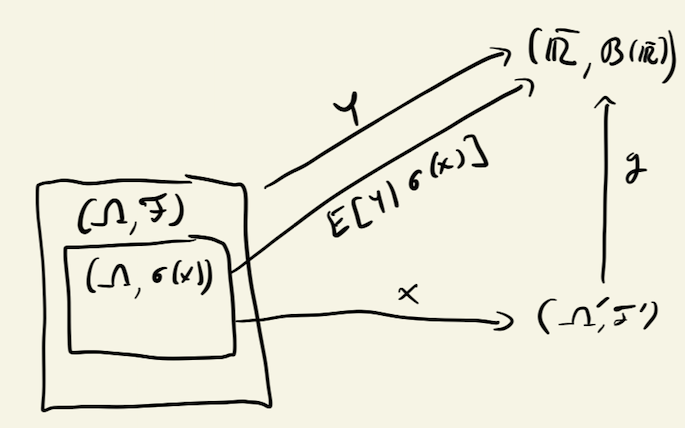 (ℝ̄, ℬ(ℝ̄))
Y
E[Y|σ(x)]
g
(Ω, ℱ)
(Ω, σ(x))
x
(Ω', ℱ')